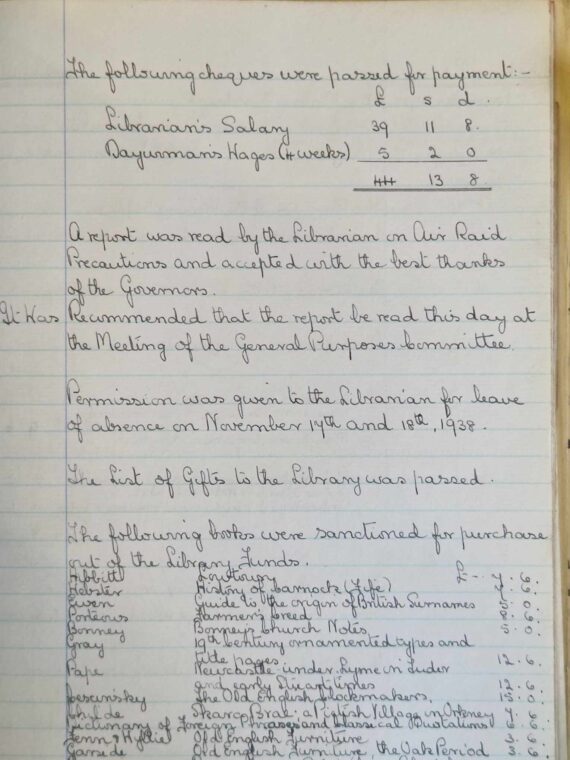 The following cheques were passed for payment:-
£ s d.
Librarian's Salary 39 11 8.
Dayurman's Wages (4 weeks) 5 2 0
44 13 8
A report was read by the Librarian on Air Raid
Precautions and accepted with the best thanks
of the Governors.
It Was Recommended that the report be read this day at
the Meeting of the General Purposes Committee.
Permission was given to the Librarian for leave
of absence on November 17th and 18th, 1938.
The List of Gifts to the Library was passed.
The following books were sanctioned for purchase
out of the Library Funds.
Hibbitt £ - 7. 6.
Webster History of Carnock (Fife) 7. 6.
Ewen Guide to the origin of British Surnames 5. 0.
Porteous Farmer's Creed 8. 6.
Bonney Bonney's Church Notes 5. 0.
Gray 19th Century ornamented types and
title pages 12. 6.
Pape Newcastle under Lyme in Tudor
and early Stuart times 12. 6.
Cescinsky The Old English Clockmakers, 15. 0.
Childe Skara Brae a Pictish Village in Orkney 7. 6.
Dictionary of Foreign Phrases and Classical Quotations 6.
Fenn & Wyllie Old English Furniture 3. 6.
Garside Old English Furniture, the Oak Period 3. 6.